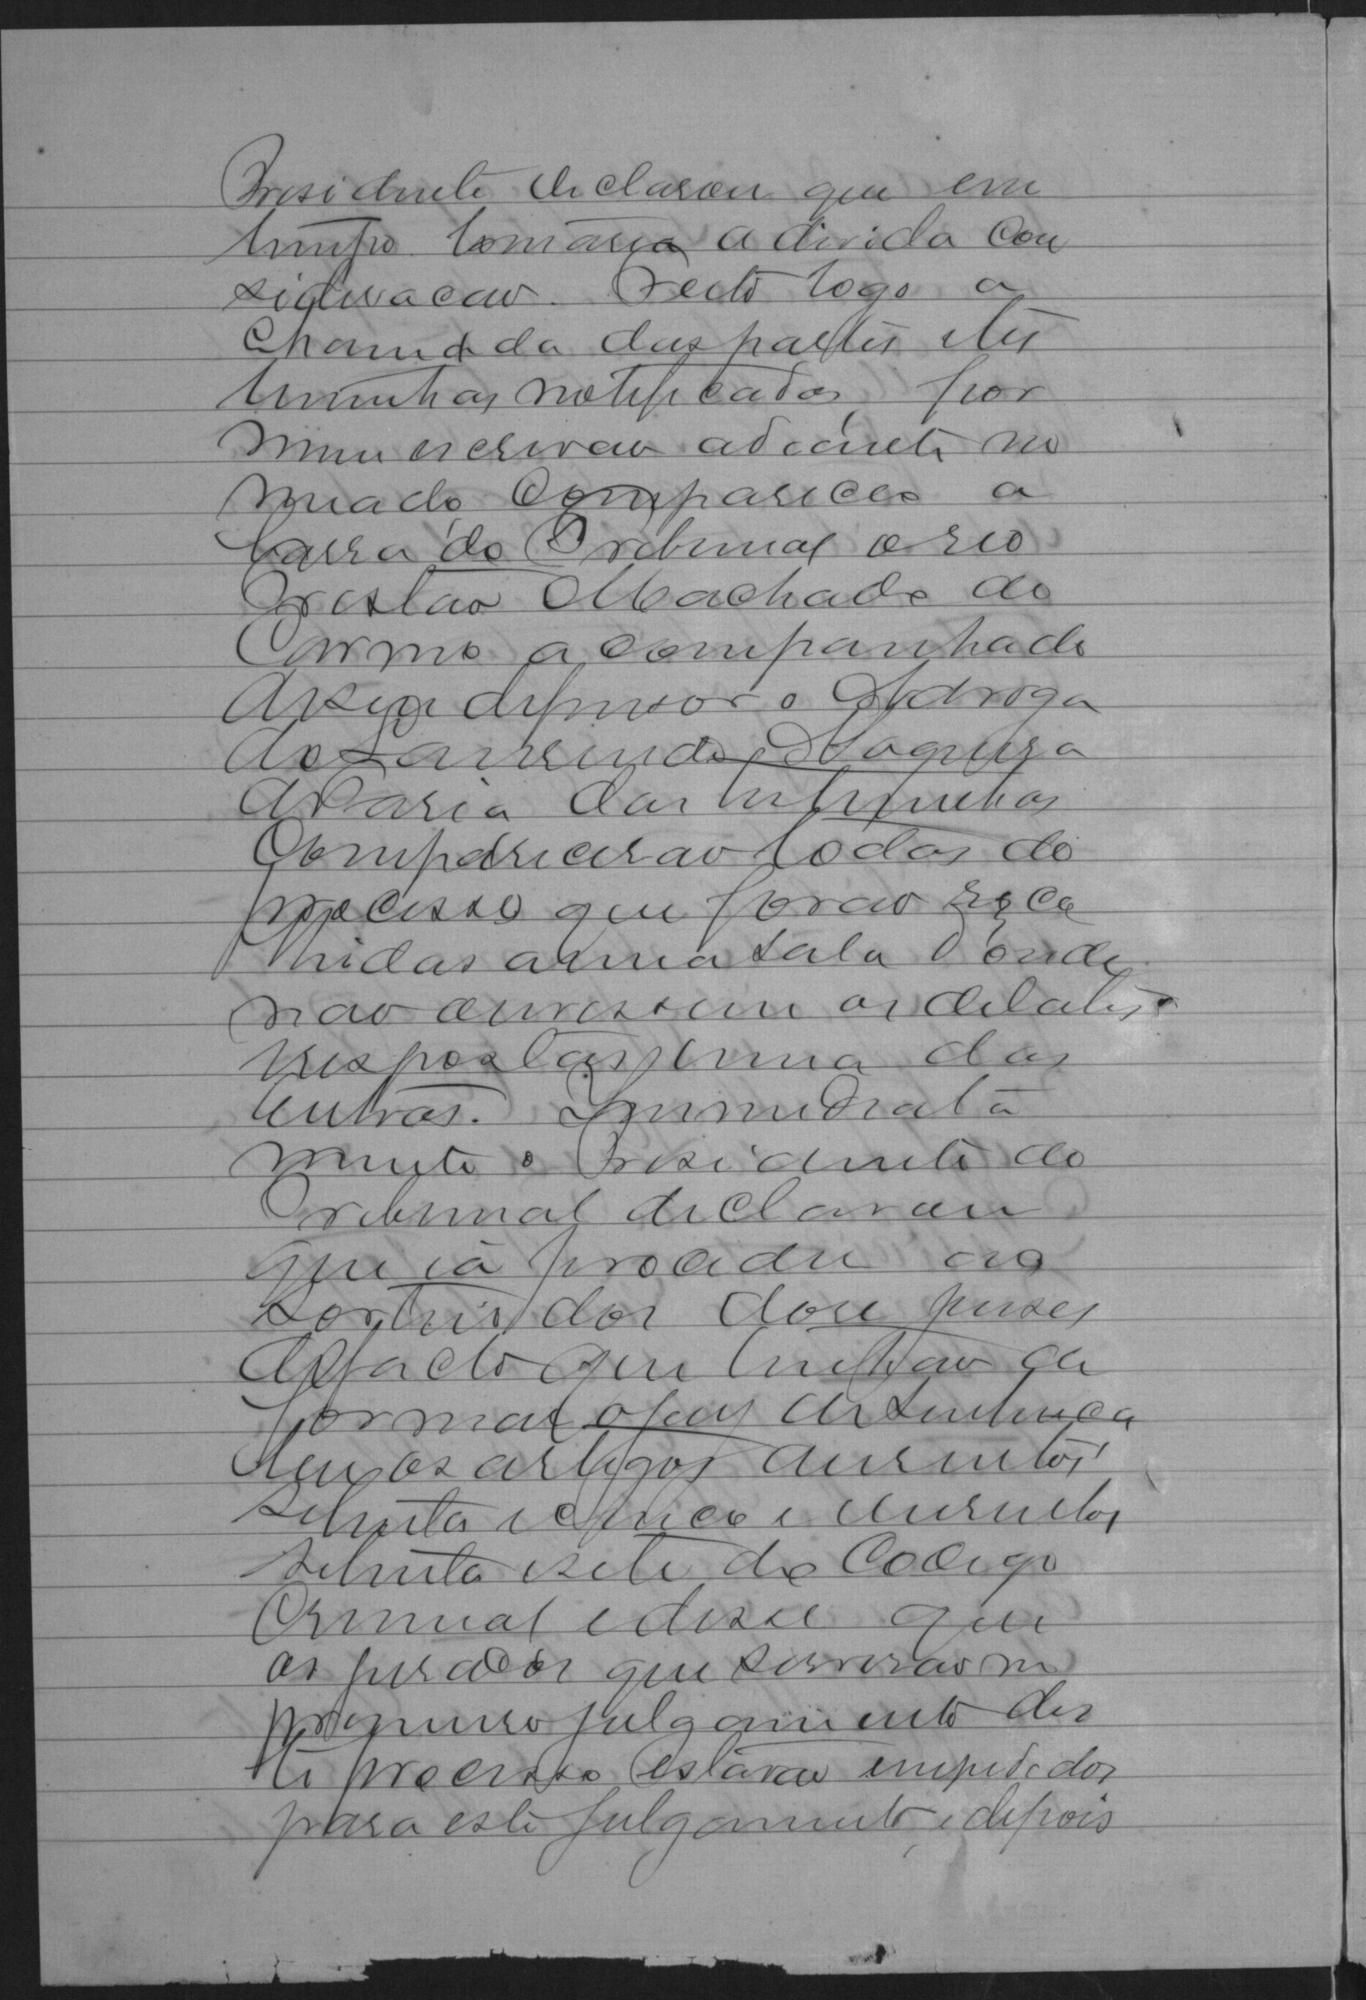 Presidente declarou que em
tempo tomaria a divida con
sideracao. Feito logo a
chamada das partes etes
temunhas notificadas, por
mim escrivao adiante no
meado compareceo a
barra do Tribunal o reo
Machado do
Carmo acompanhado
de seu defensor o Advoga
do
das testemunhas
Comparecerao todas do
processo que forao reco
lhidas a uma sala d'onde
nao ouvissem os debates
respostas uma das
outras. Immediata
mente o Presidente do
Tribunal declarou
que ia proceder ao
sorteio dos doze juizes
de facto que tinhao de
formar o jury de sentenca
leu os artigos duzentos
setenta e cinco e duzentos
setenta e sete do Codigo
Criminal e disse que
os jurados que servirao no
primeiro julgamento des
te processo estavao impedidos
para este julgamento, e depois